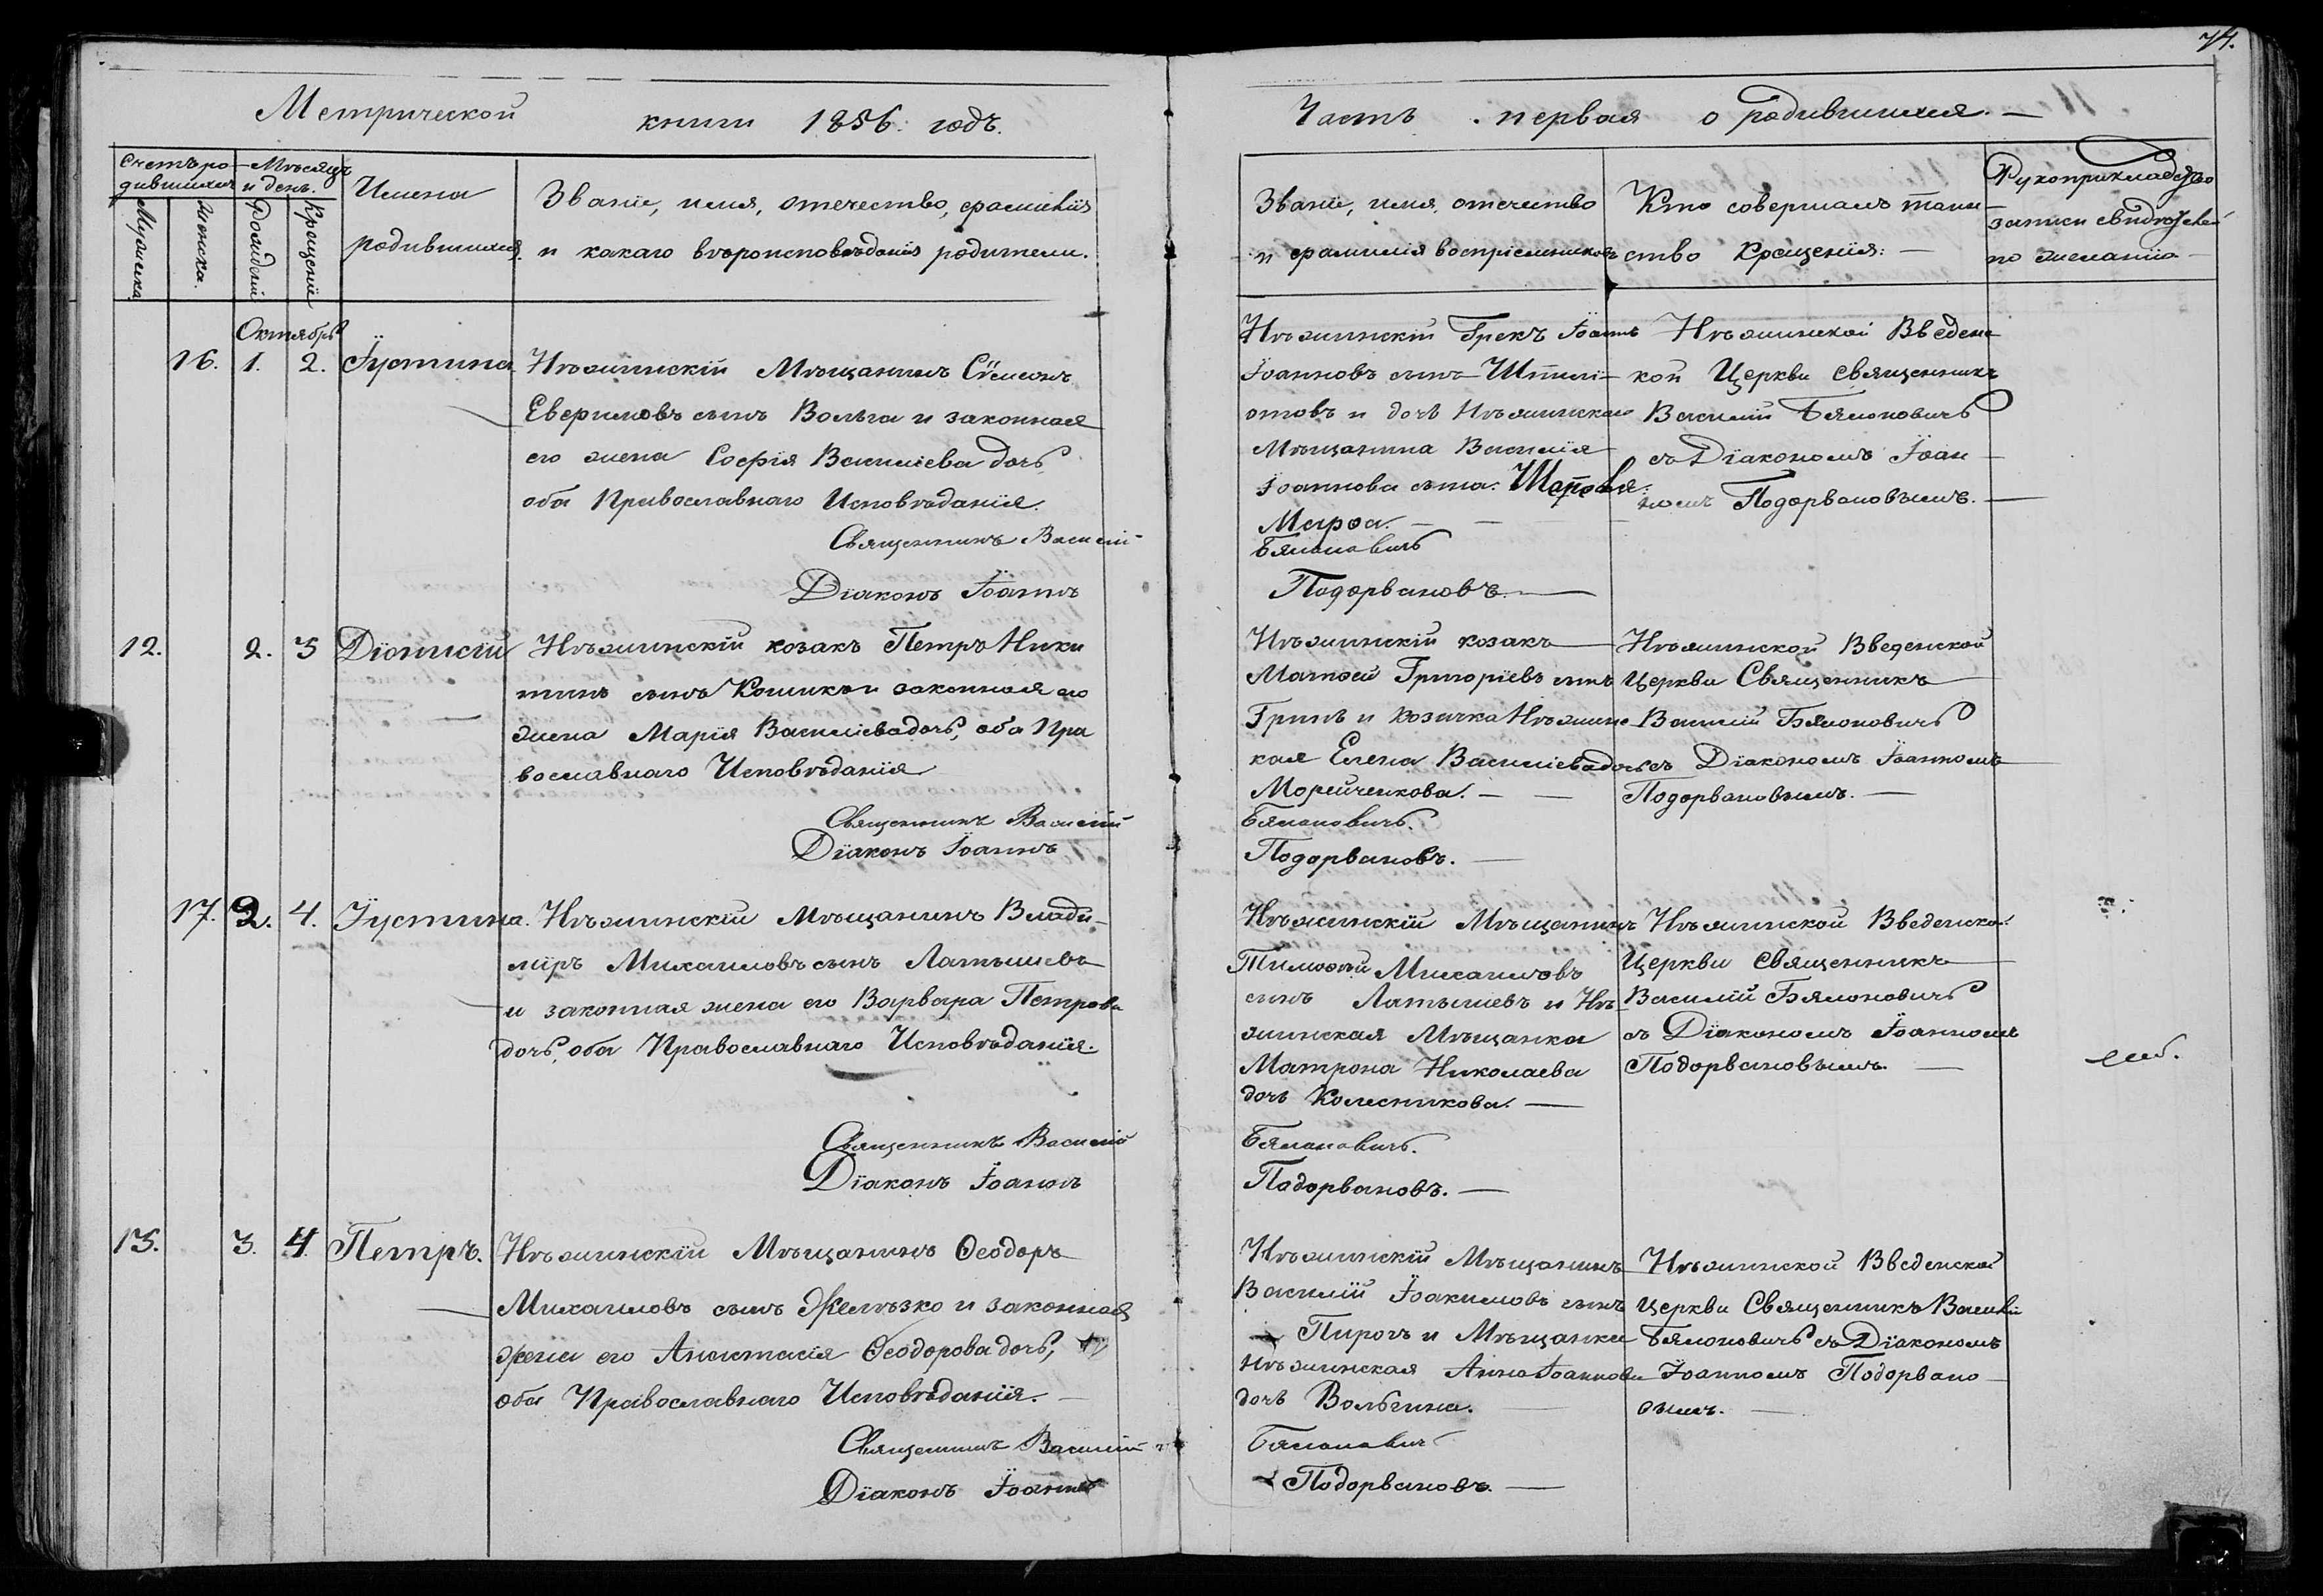 74.
Метрической книги 1856. годъ.
Часть первая о родившихся.
Счетъ ро-
дившихся
Мѣсяцъ
и день.
Имена
родившихся.
Званіе, имя, отечество, фамилія
и какаго вѣроисповѣданія родители.
Мужеска.
Женска.
Рожденія
Крещеніе
Званіе, имя, отечество
и фамилія воспріемниковъ
Кто совершалъ таин-
ство Крещенія:
Рукоприкладство
записи свидѣтелей
по желанію
Октябрь
16. 1. 2. Іустина Нѣжинскій Мѣщанинъ Сѵмеонъ
Евфимовъ сынъ Вольга и законная
его жена Софія Василіева дочь,
оба Православнаго Исповѣданія.
Священникъ Василій
Діаконъ Іоаннъ
Нѣжинскій Грекъ Іоаннъ
Іоанновъ сынъ
и дочь Нѣжинскаго
Мѣщанина Василія
Іоаннова сына
Марфа.
Бялоновичъ
Подорвановъ.
Нѣжинской Введенс
кой Церкви Священникъ
Василій Бялоновичъ
съ Діакономъ Іоан
номъ Подорвановымъ.
12. 2. 3 Діонисій Нѣжинскій козакъ Петръ Ники
тинъ сынъ Кошикъ и законная его
жена Марія Василіева дочь, оба Пра
вославнаго Исповѣданія
Священникъ Василій
Діаконъ Іоаннъ
Нѣжинскій козакъ
Матѳей Григоріевъ сынъ
Гринь и козачка Нѣжинс
кая Елена Василіева дочь
Морейченкова.
Бялоновичъ.
Подорвановъ.
Нѣжинской Введенской
Церкви Священникъ
Василій Бялоновичъ
съ Діакономъ Іоанномъ
Подорвановымъ.
17. 2. 4. Іустина. Нѣжинскій Мѣщанинъ Влади-
міръ Михаиловъ сынъ Латышевъ
и законная жена его Варвара Петрова
дочь, оба Православнаго Исповѣданія.
Священникъ Василій
Діаконъ Іоаннъ
Нѣжинскій Мѣщанинъ
Тимоѳей Михаиловъ
сынъ Латышевъ и Нѣ-
жинская Мѣщанка
Матрона Николаева
дочь Колесникова.
Бялоновичъ.
Подорвановъ.
Нѣжинской Введенской
Церкви Священникъ
Василій Бялоновичъ
съ Діакономъ Іоанномъ
Подорвановымъ.
13. 3. 4. Петръ. Нѣжинскій Мѣщанинъ Ѳеодоръ
Михаиловъ сынъ Желѣзко и законная
жена его Анастасія Ѳеодорова дочь,
оба Православнаго Исповѣданія.
Священникъ Василій
Діаконъ Іоаннъ
Нѣжинскій Мѣщанинъ
Василій Іоакимовъ сынъ
Пирогъ и Мѣщанка
Нѣжинская Анна Іоаннова
дочь Вольгина.
Бялоновичъ
Подорвановъ.
Нѣжинской Введенской
Церкви Священникъ Василій
Бялоновичъ съ Діакономъ
Іоанномъ Подорвано
вымъ.